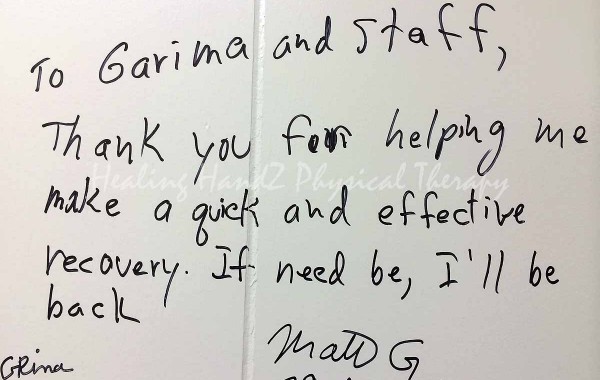 To Garima and Staff,
Thank you for helping me
Healing HandZ Physical Therapy
make a quick and effective
recovery. If need be, I'll be
back
Matt G